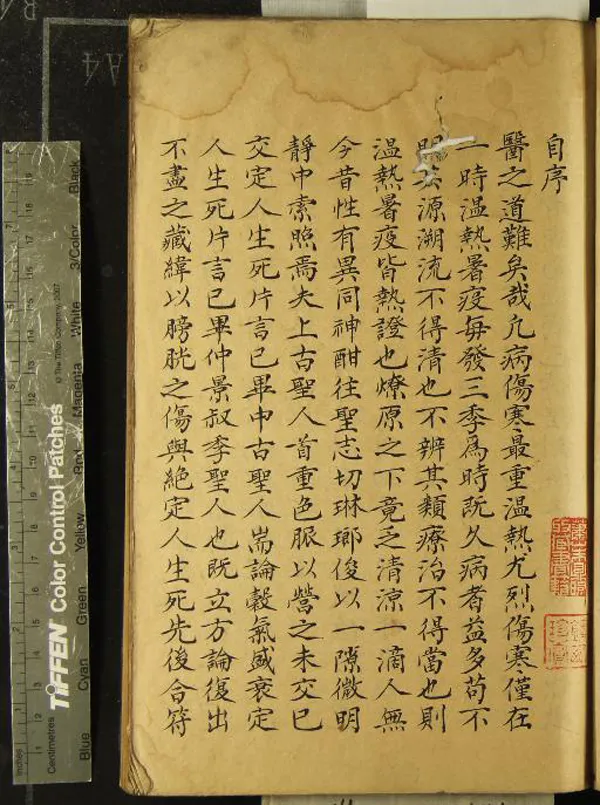 自序
醫之道難矣哉凢病傷寒最重溫熱尤烈傷寒僅在
一時溫熱暑疫每發三季爲時旣久病者益多苟不
明其源溯流不得清也不辨其類療治不得當也則
溫熱暑疫皆熱證也燎原之下竟乏清涼一滴人無
今昔性有異同神酣往聖志切琳瑯俊以一隙微明
靜中索照焉夫上古聖人首重色脈以營之未交已
交定人生死片言已畢中古聖人耑論穀氣盛衰定
人生死片言已畢仲景叔季聖人也既立方論復出
不盡之藏緯以膀胱之傷與絕定人生死先後合符
A4
TIFFEN Color Control Patches
© The Tiffen Company, 2007
Inches
Centimetres
Blue
Cyan
Green
Yellow
Red
Magenta
White
3/Color
Black